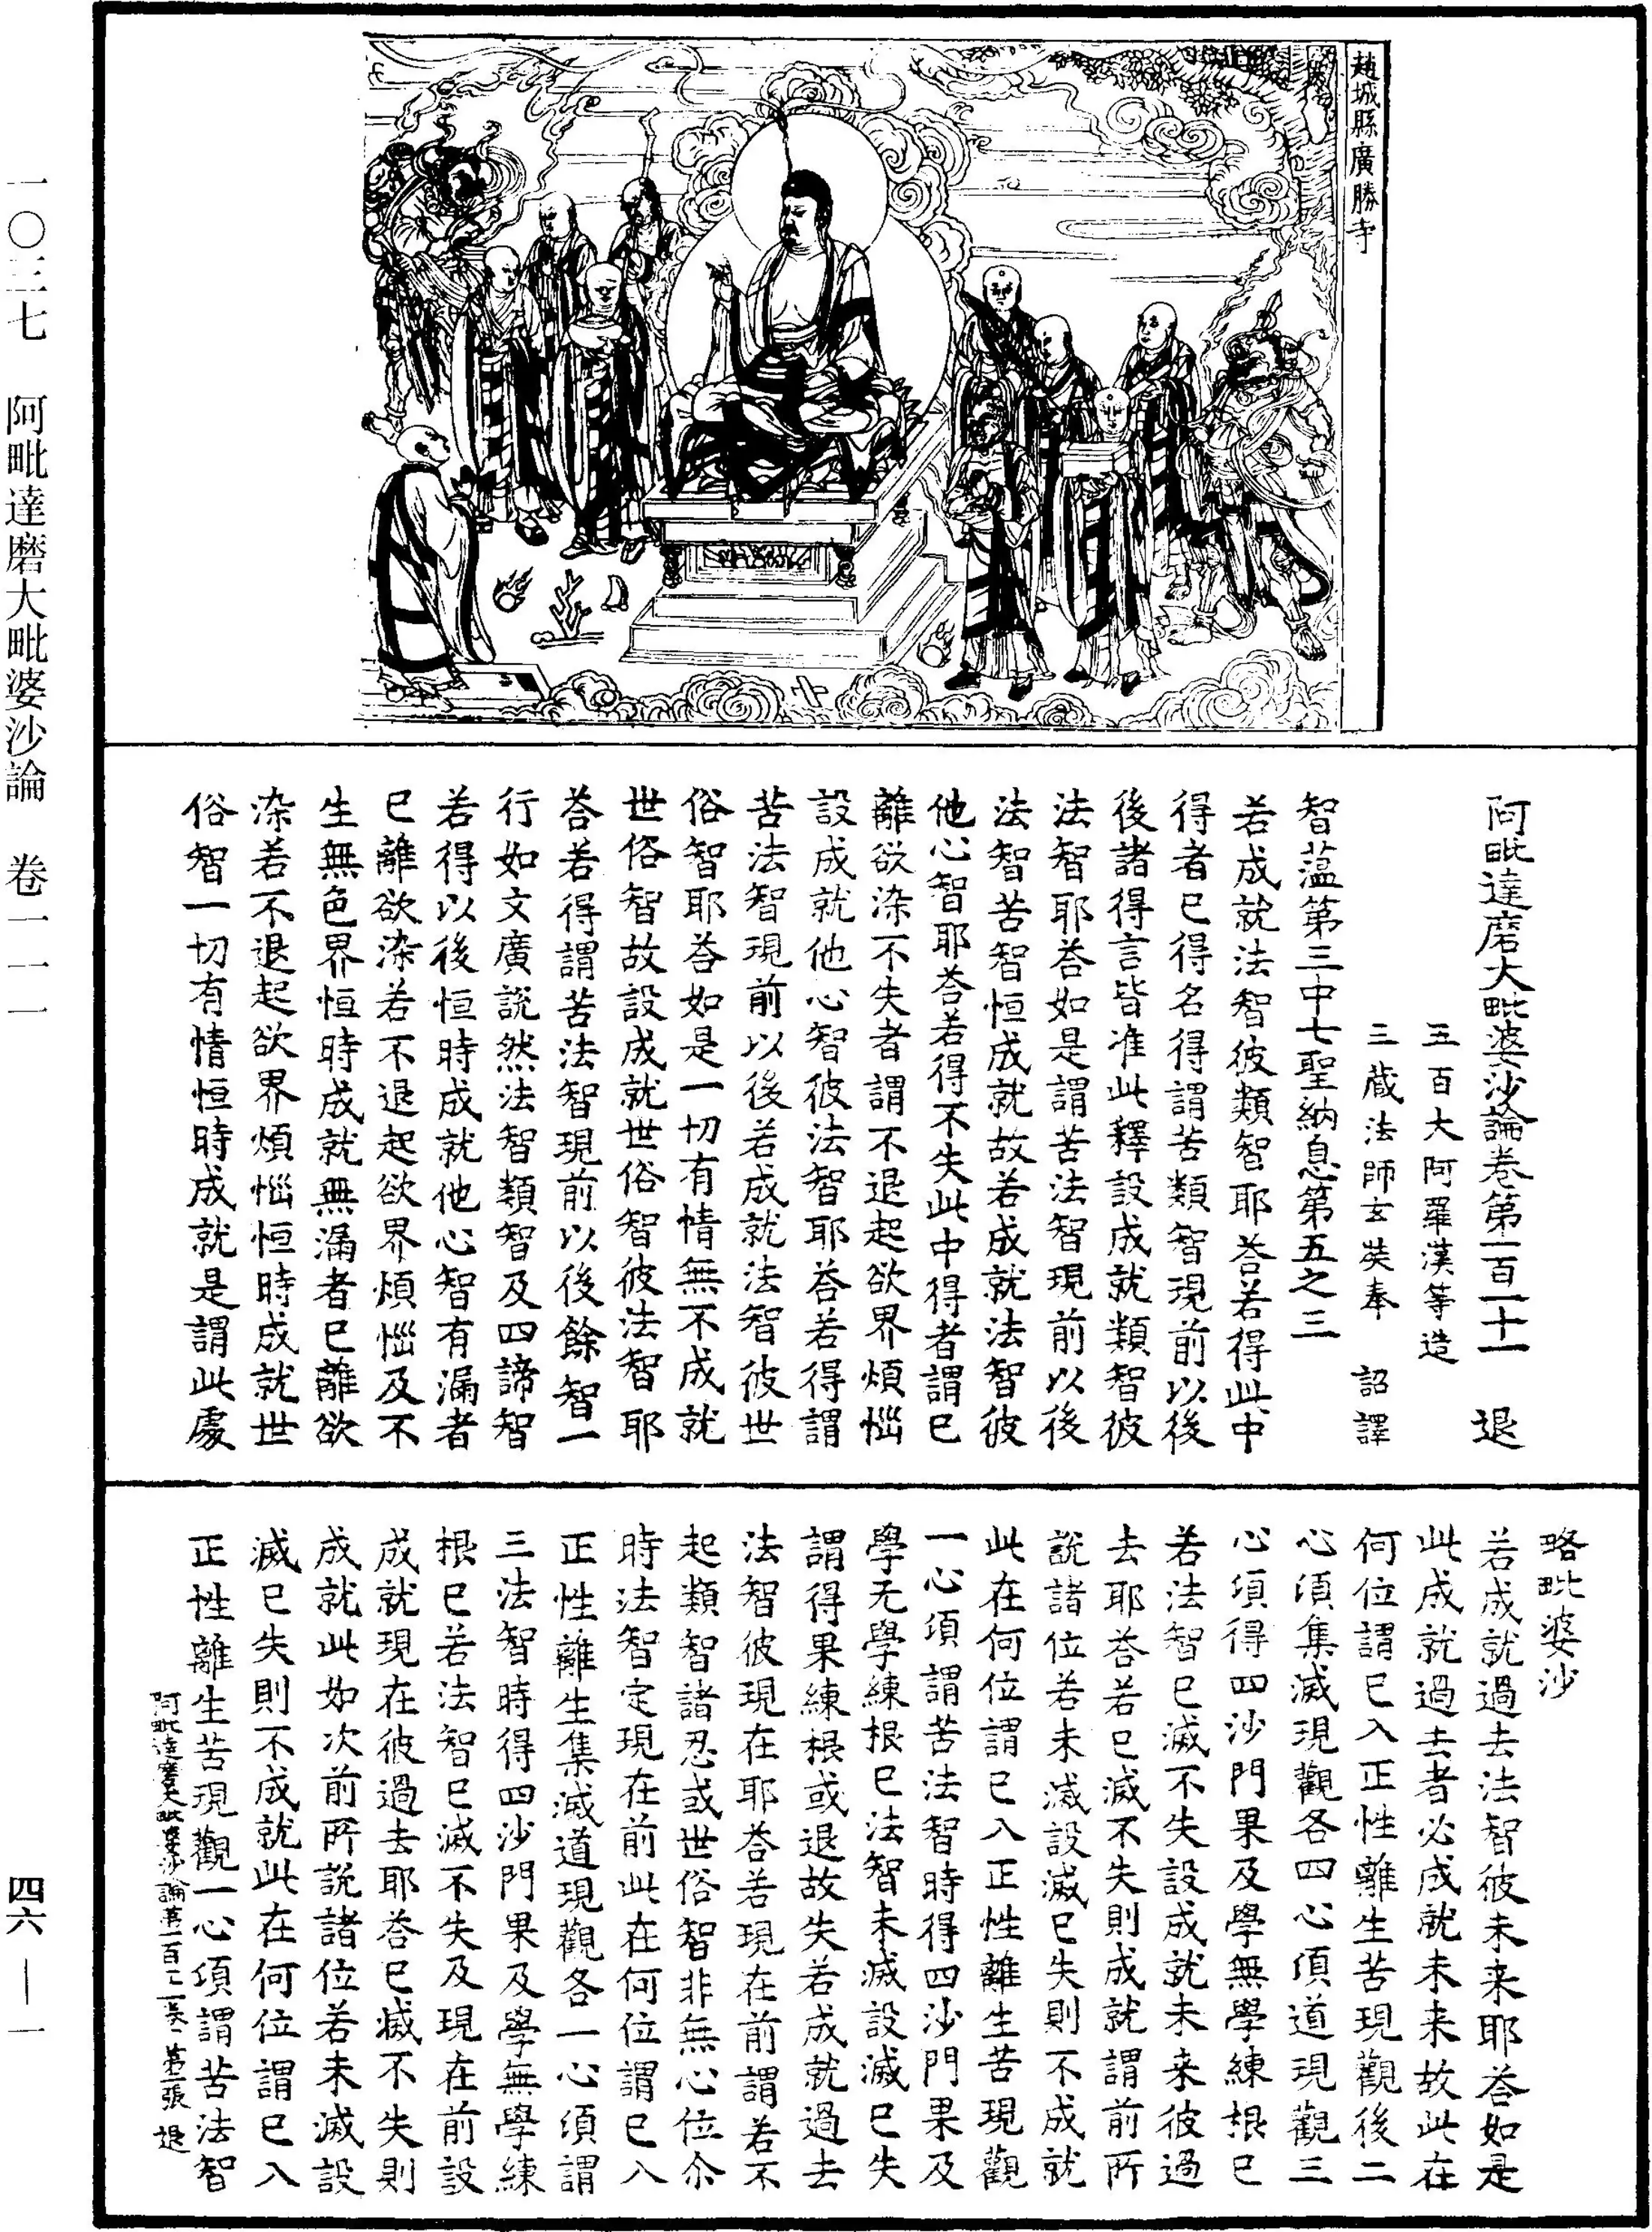 趙城縣廣勝寺
阿毗達磨大毗婆沙論卷第一百一十一　退
五百大阿羅漢等造
三藏法師玄奘奉　詔譯
智蕰第三中七聖納息第五之三
若成就法智彼類智耶荅若得此中
得者巳得名得謂苦類智現前以後
後諸得言皆准此釋設成就類智彼
法智耶荅如是謂苦法智現前以後
法智苦智恒成就故若成就法智彼
他心智耶荅若得不失此中得者謂巳
離欲染不失者謂不退起欲界煩惱
設成就他心智彼法智耶荅若得謂
苦法智現前以後若成就法智彼世
俗智耶荅如是一切有情無不成就
世俗智故設成就世俗智彼法智耶
荅若得謂苦法智現前以後餘智一
行如文廣說然法智類智及四諦智
若得以後恒時成就他心智有漏者
巳離欲染若不退起欲界煩惱及不
生無色界恒時成就無漏者巳離欲
染若不退起欲界煩惱恒時成就世
俗智一切有情恒時成就是謂此處
略毗婆沙
若成就過去法智彼未来耶荅如是
此成就過去者必成就未来故此在
何位謂巳入正性離生苦現觀後二
心湏集滅現觀各四心湏道現觀三
心湏得四沙門果及學無學練根巳
若法智巳滅不失設成就未来彼過
去耶荅若巳滅不失則成就謂前所
說諸位若未滅設滅巳失則不成就
此在何位謂巳入正性離生苦現觀
一心湏謂苦法智時得四沙門果及
學无學練根巳法智未滅設滅巳失
謂得果練根或退故失若成就過去
法智彼現在耶荅若現在前謂若不
起類智諸忍或世俗智非無心位尒
時法智定現在前此在何位謂巳入
正性離生集滅道現觀各一心湏謂
三法智時得四沙門果及學無學練
根巳若法智巳滅不失及現在前設
成就現在彼過去耶荅巳滅不失則
成就此如次前所說諸位若未滅設
滅巳失則不成就此在何位謂巳入
正性離生苦現觀一心湏謂苦法智
阿毗達磨大毗婆沙論第一百一十一　第一張　退
一〇三七　阿毗達磨大毗婆沙論　卷一一一
四六—一